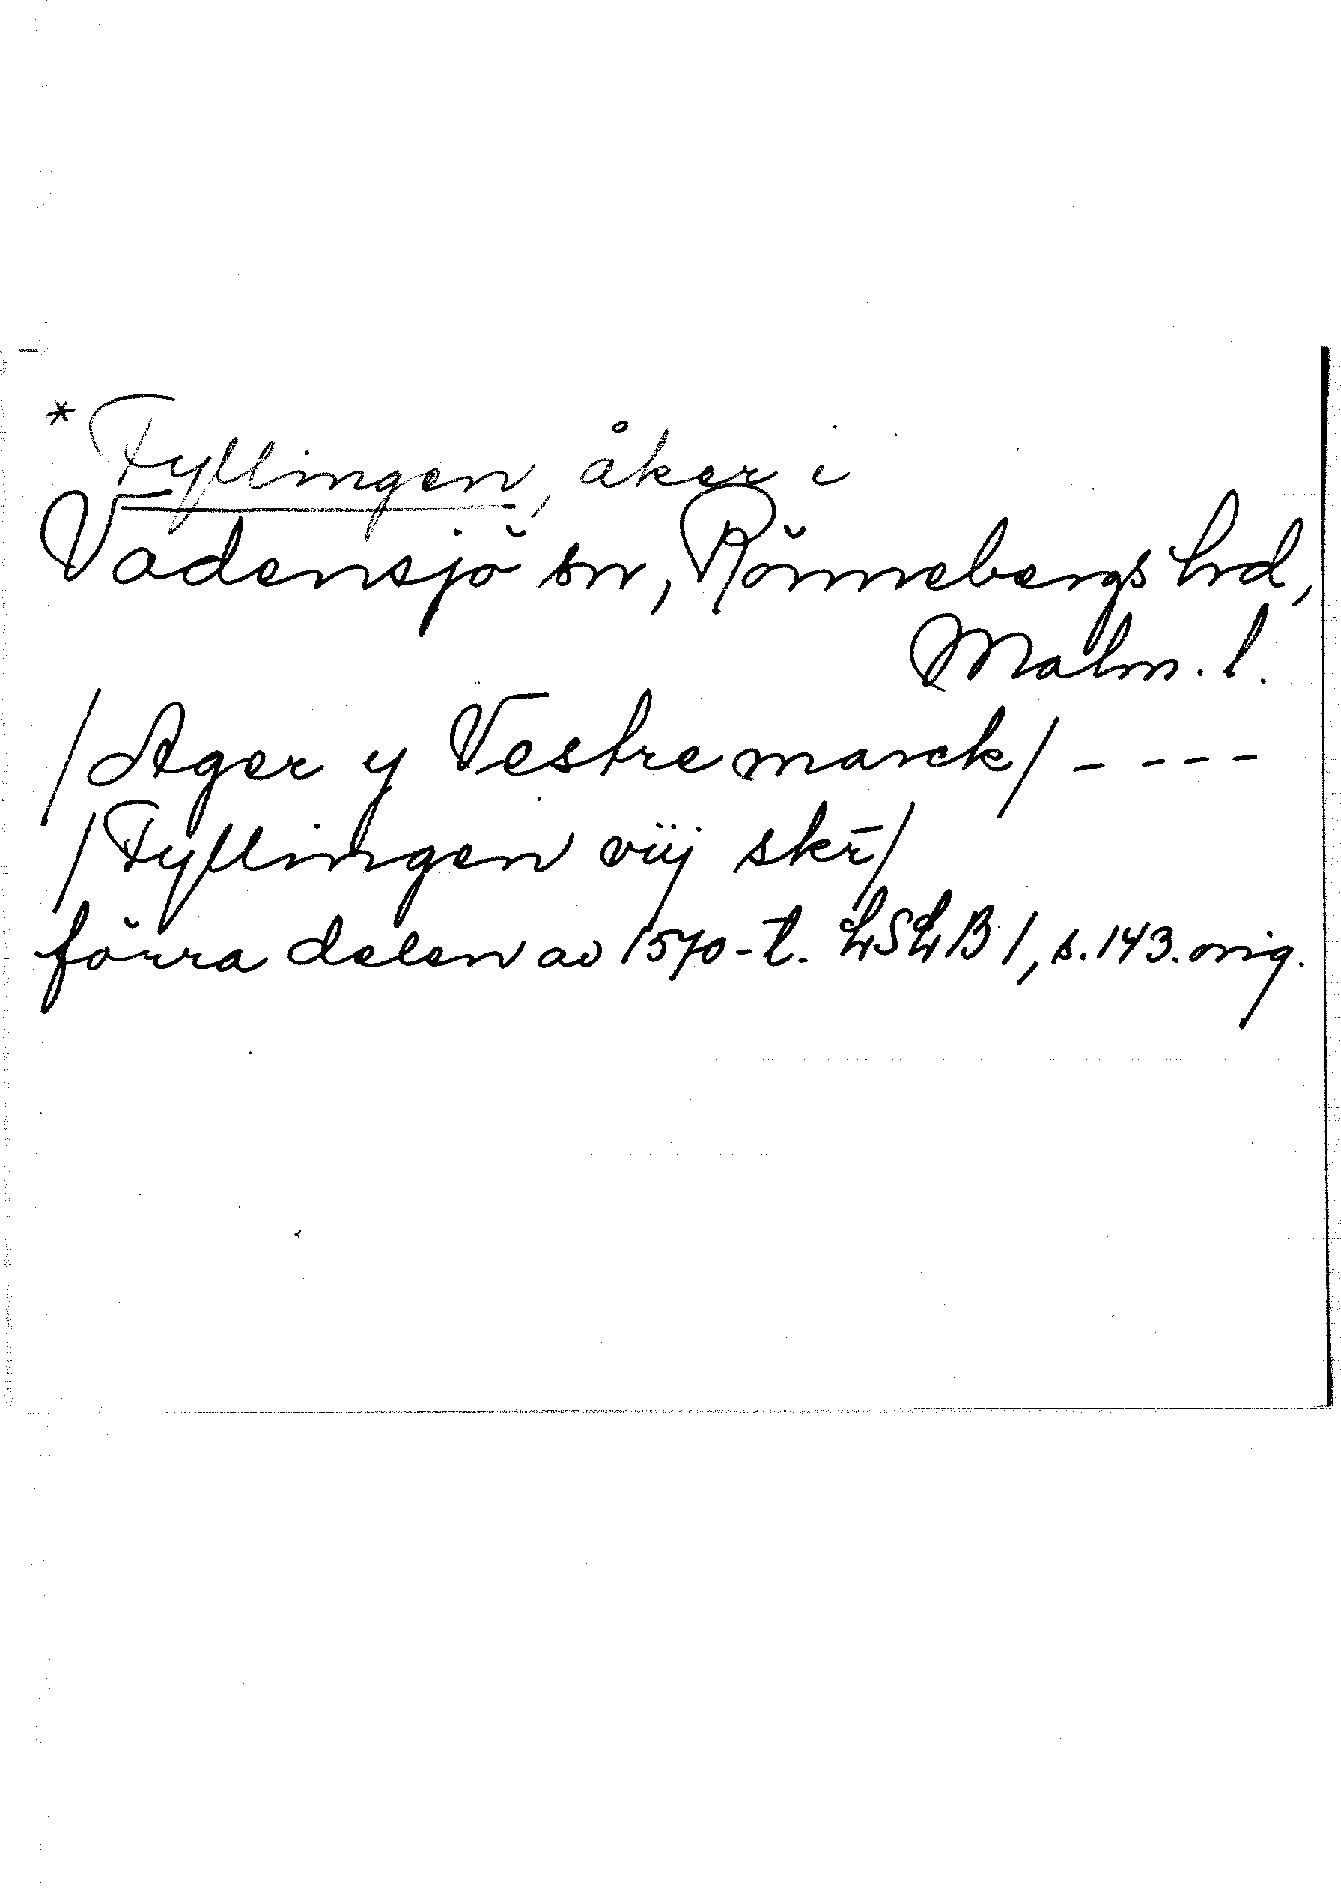 * Fyllingen, åker i
Vadensjö sn, Rönnebergs hrd,
Malm. l.
/Ager y Vestre marck/ - - - -
/Fyllingen viij skr̄/
förra delen av 1570-t. LSLB 1, s. 143. orig.